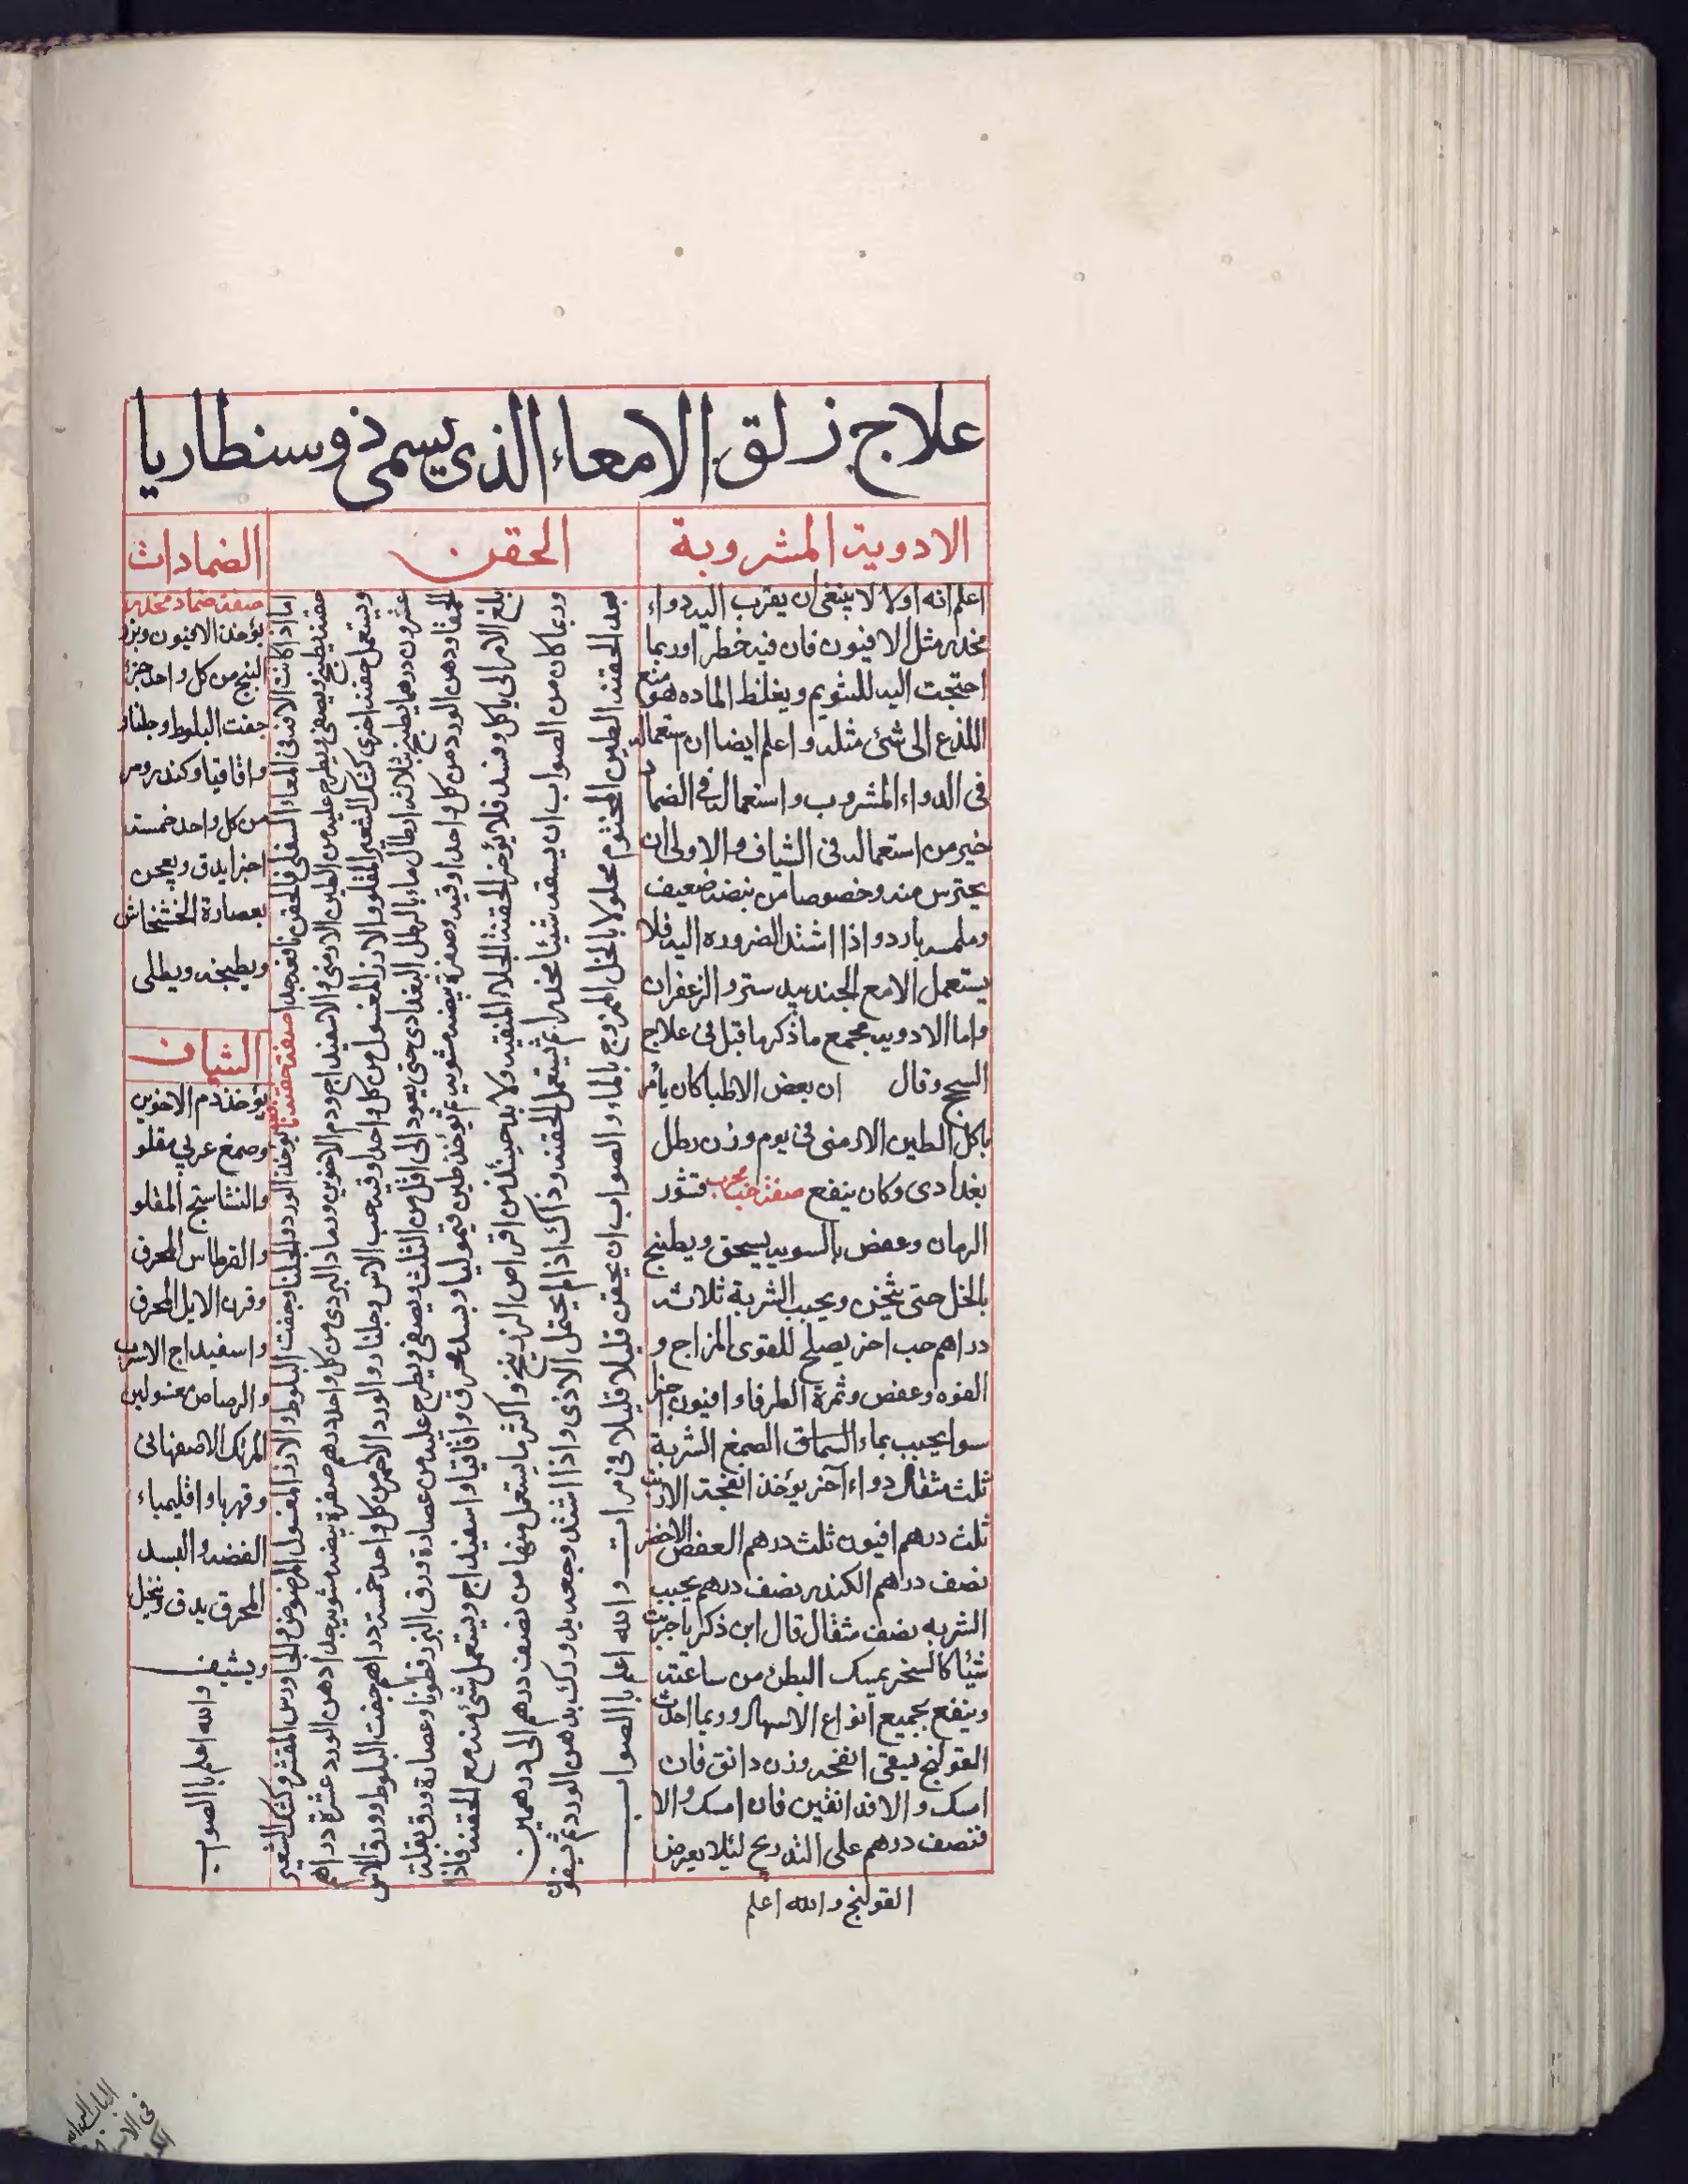 علاج زلق الامعاء الذى يسمى ذوسنطاريا
الادوية المشروبة
اعلم انه اولا لا ينبغى ان يقرب اليه دواء
مخدر مثل الافيون فان فيه خطر اوربما
احتجت اليه للتنويم ويغلظ الماده
اللذع الى شئ مثله واعلم ايضا ان استعماله
فى الدواء المشروب واستعماله فى الضما
خير من استعماله فى الشياف والاولى ان
يحترس منه وخصوصا من نبضه ضعيف
وملمسه بارد واذا اشتد الضروره اليه فلا
يستعمل الا مع الجندبيدستر والزعفران
واما الادويه مجمع ما ذكرها قبل فى علاج
السحج وقال ان بعض الاطبا كان يأمر
باكل الطين الارمنى فى يوم وزن رطل
بغدادى وكان ينفع صفة حب مجرب قشور
الرمان وعفص بالسويه يسحق ويطبخ
بالخل حتى يثخن ويحبب الشربة ثلاثة
دراهم حب اخر يصلح للقوى المزاج و
القوه وعفص وثمرة الطرفا وافيون
سوا يحبب بماء السماق الصمغ الشربة
ثلث مثقال دواء آخر يؤخذ انفحة الارنب
ثلث درهم افيون ثلث درهم العفص الاخضر
نصف درهم الكندر نصف درهم يحبب
الشربه نصف مثقال قال ابن ذكريا
شيئا كالسحر يمسك البطن من ساعته
وينفع بجميع انواع الاسهال وربما احدث
القولنج يسقى انفحه وزن دانق فان
امسك والا فدانقين فان امسك والا
فنصف درهم على التدريج لئلا يعرض
القولنج والله اعلم
الحقن
اما اذا كانت الافه فى المعاء السفلى فالحقن نافعه جدا صفة حقنه يؤخذ الورد والجلنار وجفت البلوط والارز المغسول المرضوض والجاورس المقشر وكشك الشعير
حفنه يطبخ ويصفى ويطرح عليه من الطين الارمنى والاسفيداج ودم الاخوين ورماد البردى من كل واحد درهم صفرة بيضه مشويه جدا دهن الورد عشرة دراهم
ويستعمل حقنه اخرى كشك الشعير المقلو والارز المغسول من كل واحد اوقيه حب الاس وجلنار والورد الاحمر من كل واحد خمسة دراهم جفت البلوط وورق الاس
عشرون درهما يطبخ بثلاثه ارطال ماء بالرطل البغدادى حتى يعود الى اقل من الثلث ويصفى ويطرح عليه من عصارة ورق البزرقطونا وعصارة ورق بقلة
الحمقا ودهن الورد من كل واحد اوقيه وصفرة بيضه مشويه ثم يؤخذ طين قيموليا وبسد محرق واقاقيا واسفيداج ويستعمل شئ منه مع الحقنه فاذا
بلغ الامر الى ياكل وفسد فلا يؤخر الحقنة الجلاء المنقيه ولا بد حينئذ من اقراص الزرنيخ واكثر ما يستعمل منها من نصف درهم الى درهمين
وربما كان من الصواب ان يسقه شيئا مخدرا ثم يستعمل الحقنه وذاك اذا لم يحتمل الاذى واذا اشتد وجعه بدورك بدهن الورد
بعد الحقنه الطين المختوم محلولا بالخل الممزوج بالماء والصواب ان يحقن قليلا قليلا فى مرات والله اعلم بالصواب
الضمادات
صفة ضماد مخدر
يؤخذ الافيون وبزر
البنج من كل واحد جزء
جفت البلوط وجلنار
واقاقيا وكندر ومر
من كل واحد خمسة
اجزا يدق ويعجن
بعصارة الخشخاش
ويطبخه ويطلى
الشياف
يؤخذ دم الاخوين
وصمغ عربي مقلو
والنشاستج المقلو
والقرطاس المحرق
وقرن الايل المحرق
واسفيداج الاسرب
والرصاص مغسولين
المرتك الاصفهانى
وقهربا واقليمياء
الفضه والبسد
المحرق يدق وينخل
ويشيف
والله اعلم بالصواب